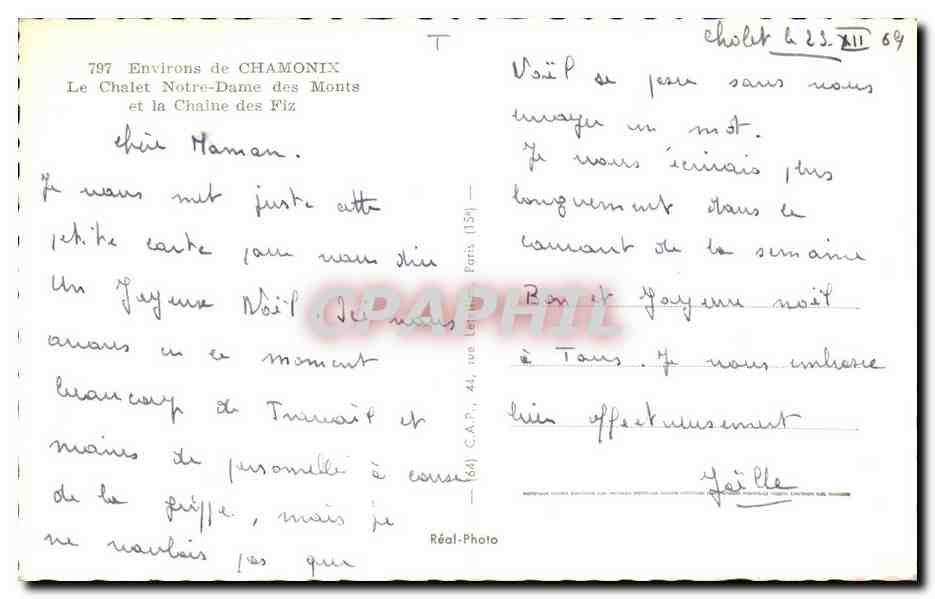 T
797 Environs de CHAMONIX
Le Chalet Notre-Dame des Monts
et la Chaîne des Fiz
chère Maman.
Je vous met juste cette
petite carte pour vous dire
Un Joyeux Noël. Ici nous
avons en ce moment
beaucoup de Travail et
moins de personelle à cause
de la grippe, mais je
ne voulais pas que
(64) C.A.P., 44, rue Paris (15e)
Réal-Photo
Cholet le 23 XII 69
Noël se passe sans vous
envoyer un mot.
Je vous écrirais plus
longuement dans le
courant de la semaine
Bon et Joyeux noël
à Tous. Je vous embrasse
bien affectueusement
Joëlle
CPAPHIL